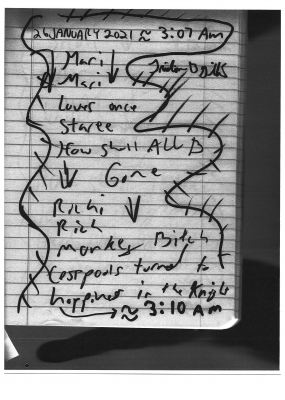 26 JANUARY 2021 ≈ 3:07 AM
Mari
Mari
Lover once
Staree
How shall ALL B
Gone
Richi
Rich
monkey Bitch
Cesspools turned to
happines in the Knight
≈ 3:10 AM